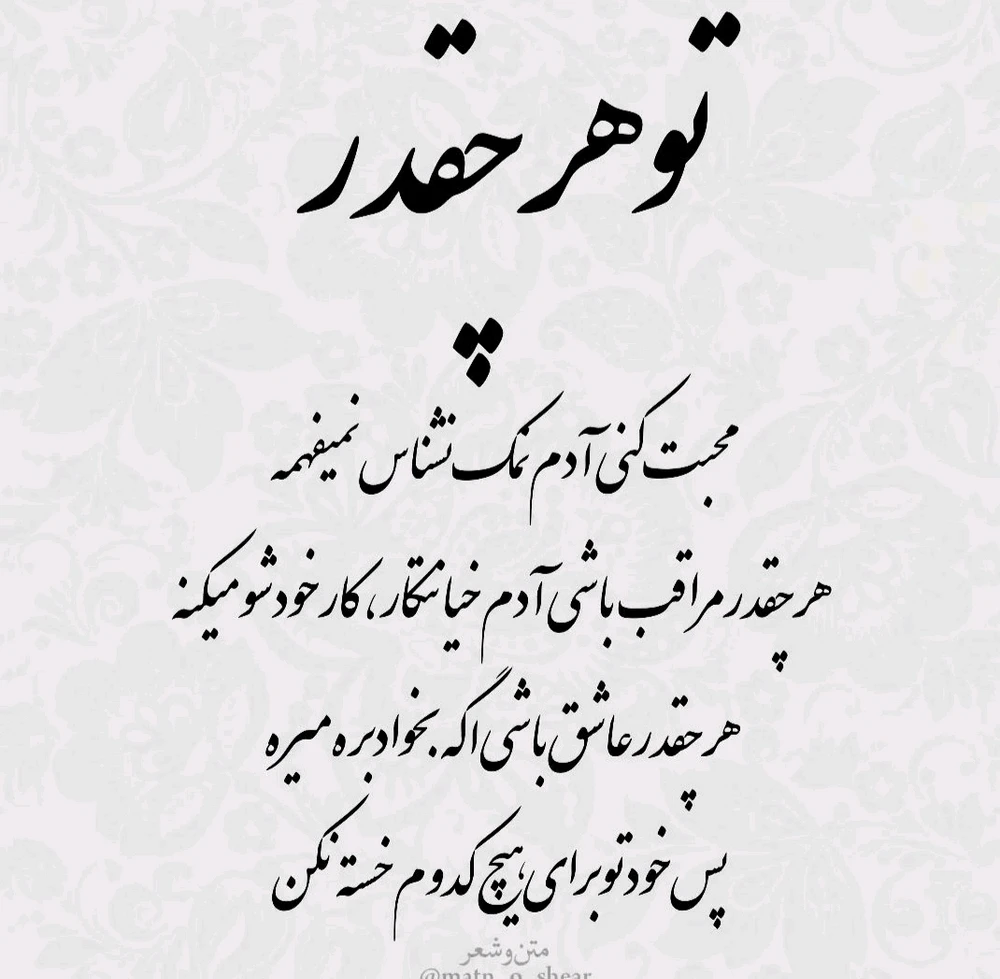 تو هر چقدر
محبت کنی آدم نمک نشناس نمیفهمه
هر چقدر مراقب باشی آدم خیانتکار، کار خودشو میکنه
هر چقدر عاشق باشی اگه بخواد بره میره
پس خودتو برای هیچ کدوم خسته نکن
متن و شعر
@matn_o_shear